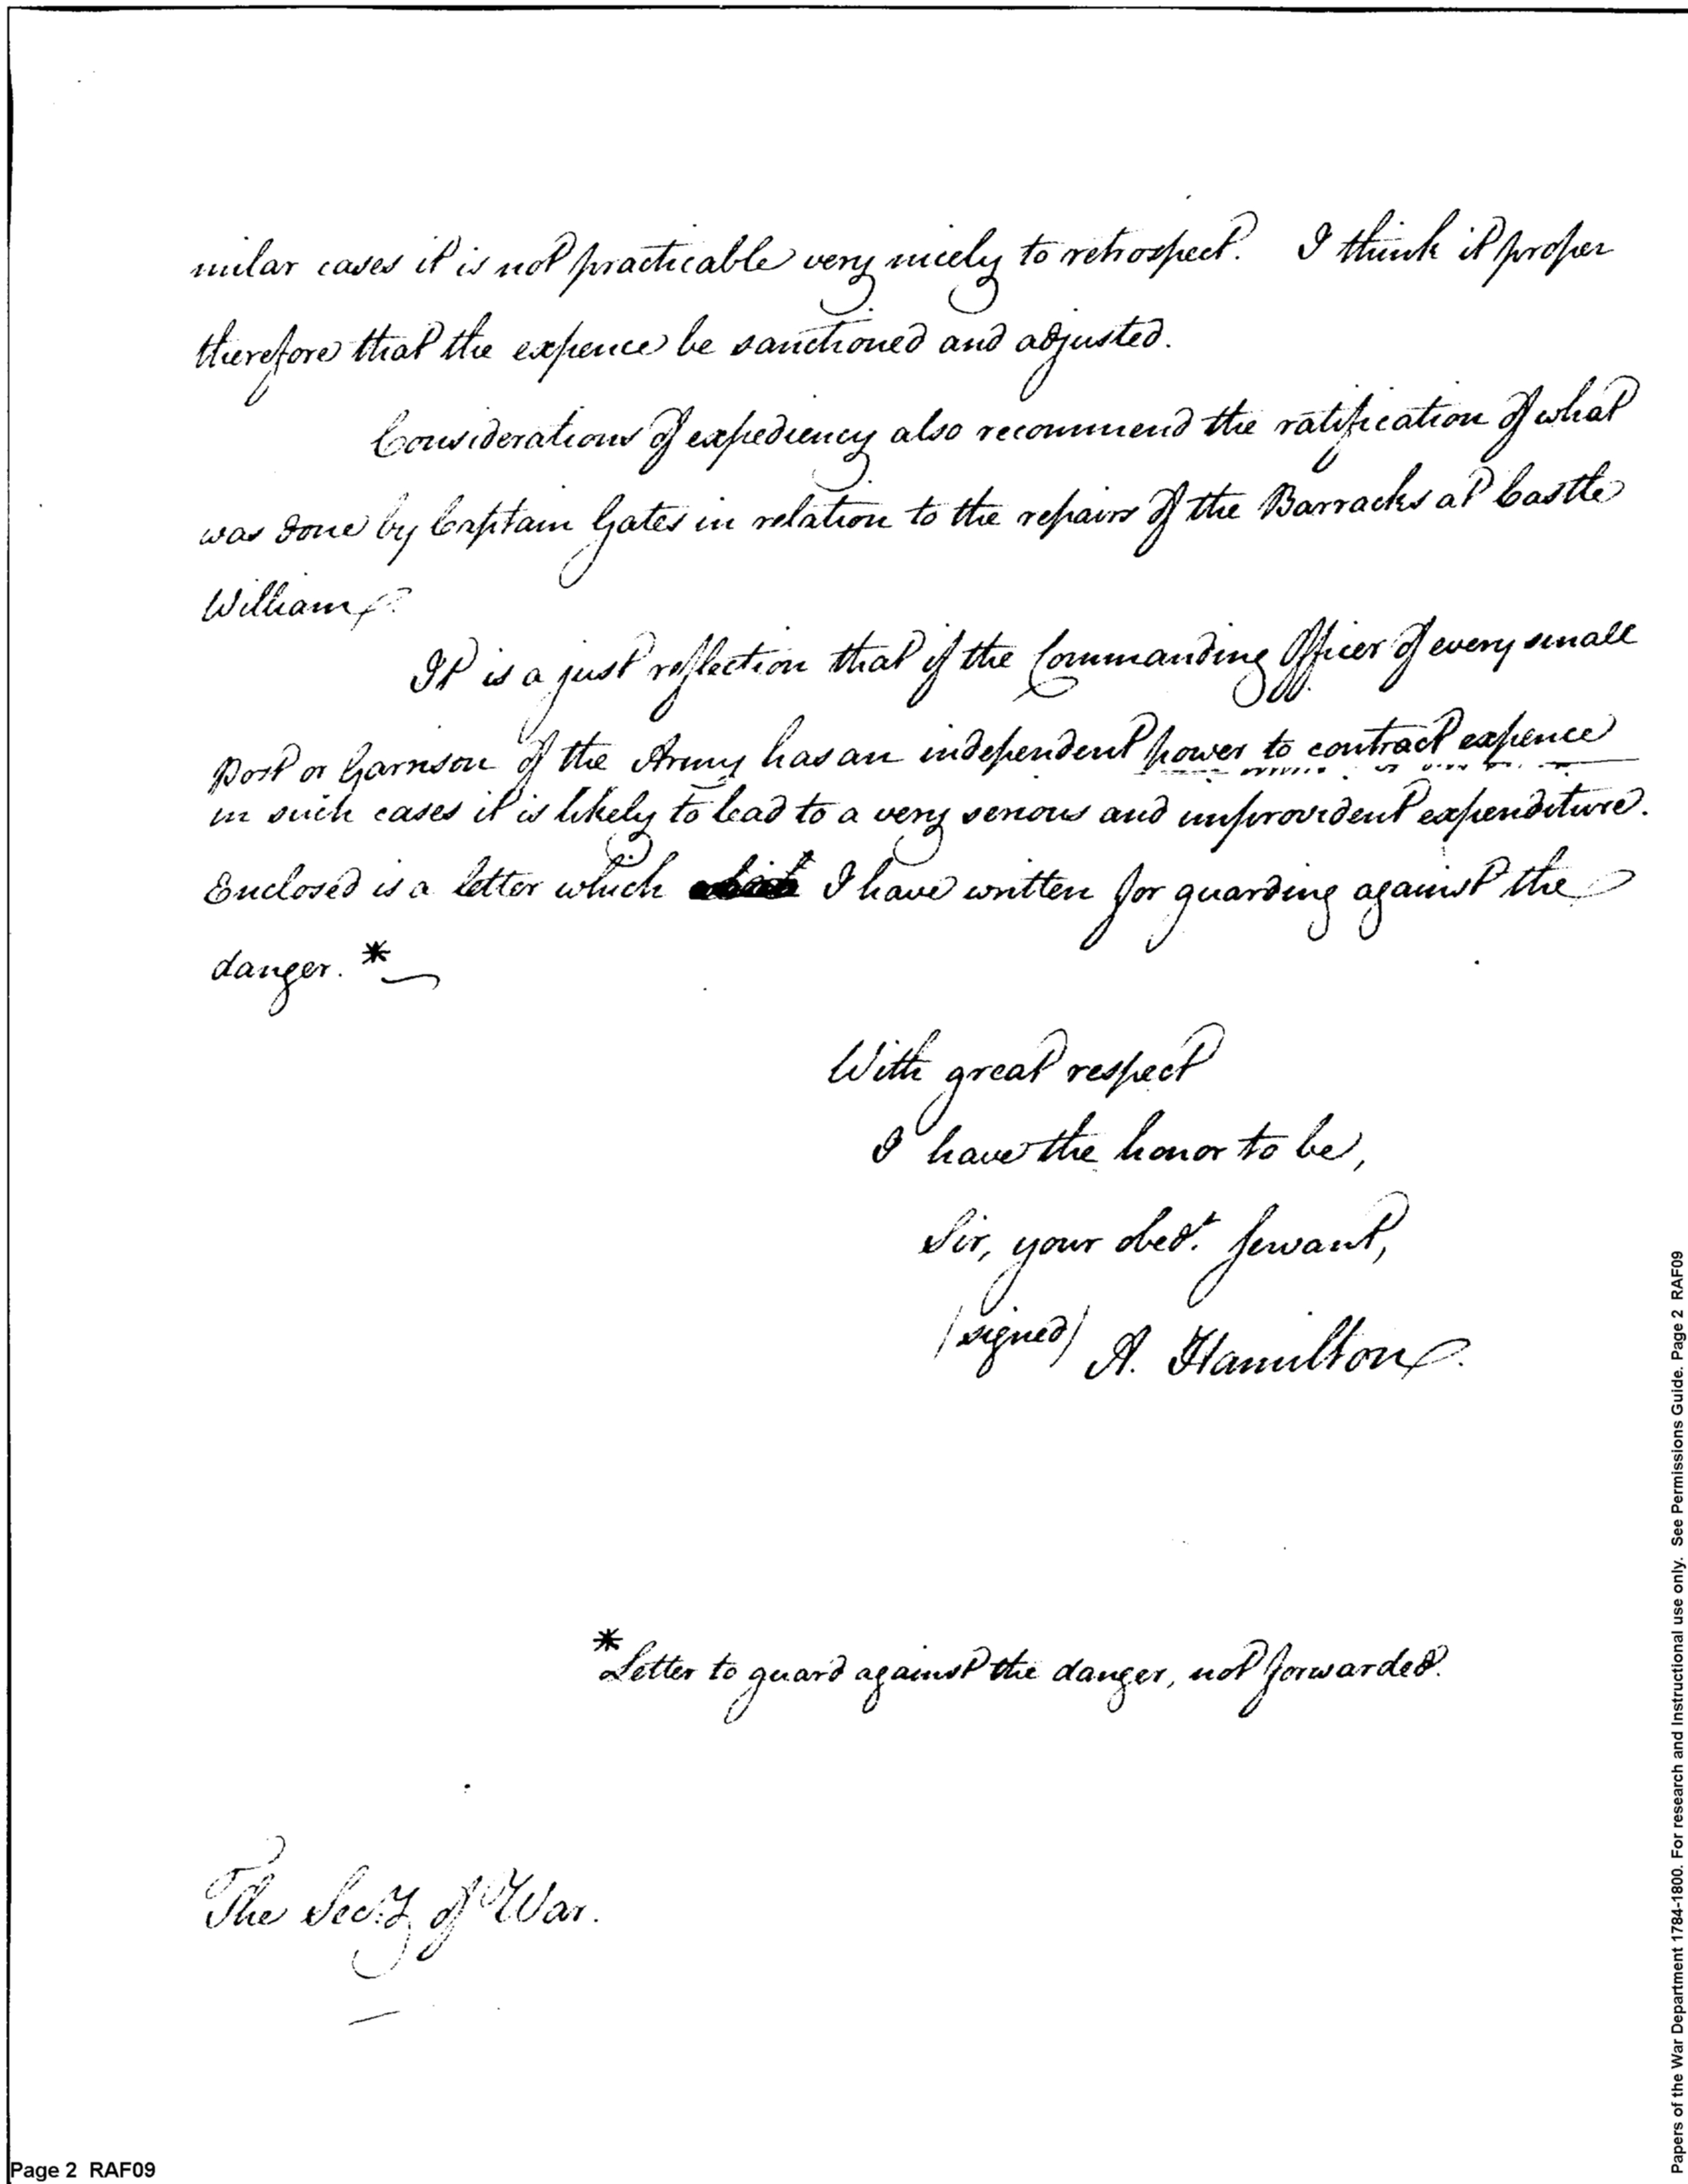 milar cases it is not practicable very nicely to retrospect. I think it proper
therefore that the expence be sanctioned and adjusted.
Considerations of expediency also recommend the ratification of what
was done by Captain Gates in relation to the repairs of the Barracks at Castle
William.
It is a just reflection that if the Commanding Officer of every small
Post or Garrison of the Army has an independent power to contract expence
in such cases it is likely to lead to a very serious and improvident expenditure.
Enclosed is a letter which I have written for guarding against the
danger. *
With great respect
I have the honor to be,
Sir, your obedt. servant,
(signed) A. Hamilton.
*Letter to guard against the danger, not forwarded.
The Secy. of War.
Page 2 RAF09
Papers of the War Department 1784-1800. For research and Instructional use only. See Permissions Guide. Page 2 RAF09